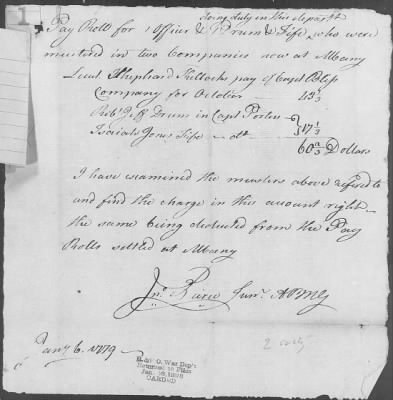 1
doing duty in this departmt
Pay Roll for 1 Officer & 1 Drum & Fife, who were
mustered in two Companies now at Albany
Lieut Shephard Kollock pay of Capt Bliss
Company for October 43 1/3
Jeff Drum in Capt Porters
Isaiah Jones Fife do 17 1/3
60 2/3 Dollars
I have examined the musters above refered to
and find the charge in this amount right
the same being deducted from the Pay
Rolls settled at Albany
Jno. Pierce Junr. APMG
Jany 6. 1779
2 only
R. & P. O. War Dep't
Returned to Files
CARDED